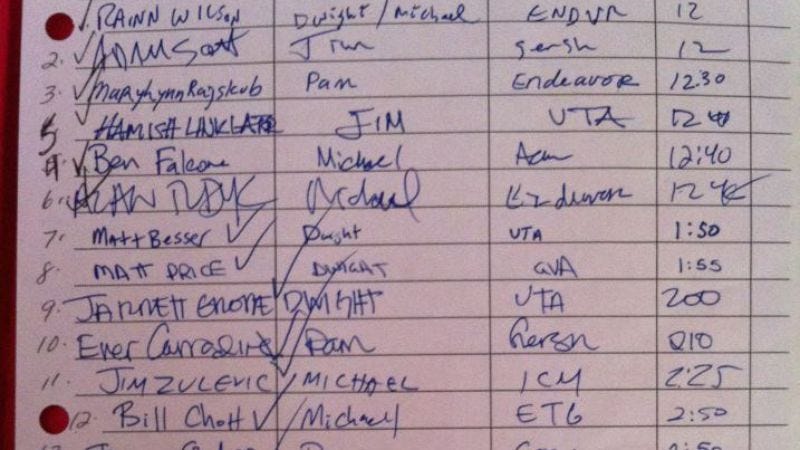 RAINN WILSON Dwight/Michael ENDVR 12
2. ADAM SCOTT Jim gersh 12
3. MaryLynn Rajskub Pam Endeavor 12:30
5 HAMISH LINKLATER JIM UTA
4 Ben Falcone Michael 12:40
6. ALAN TUDYK Michael Endeavor 1245
7. Matt Besser Dwight UTA 1:50
8. MATT PRICE DWIGHT GVA 1:55
9. JARRETT GRODE DWIGHT UTA 200
10. Ever Carradine Pam Gersh 210
11. JIM ZULEVIC MICHAEL ICM 2:25
12. Bill Chott Michael ETG 2:50